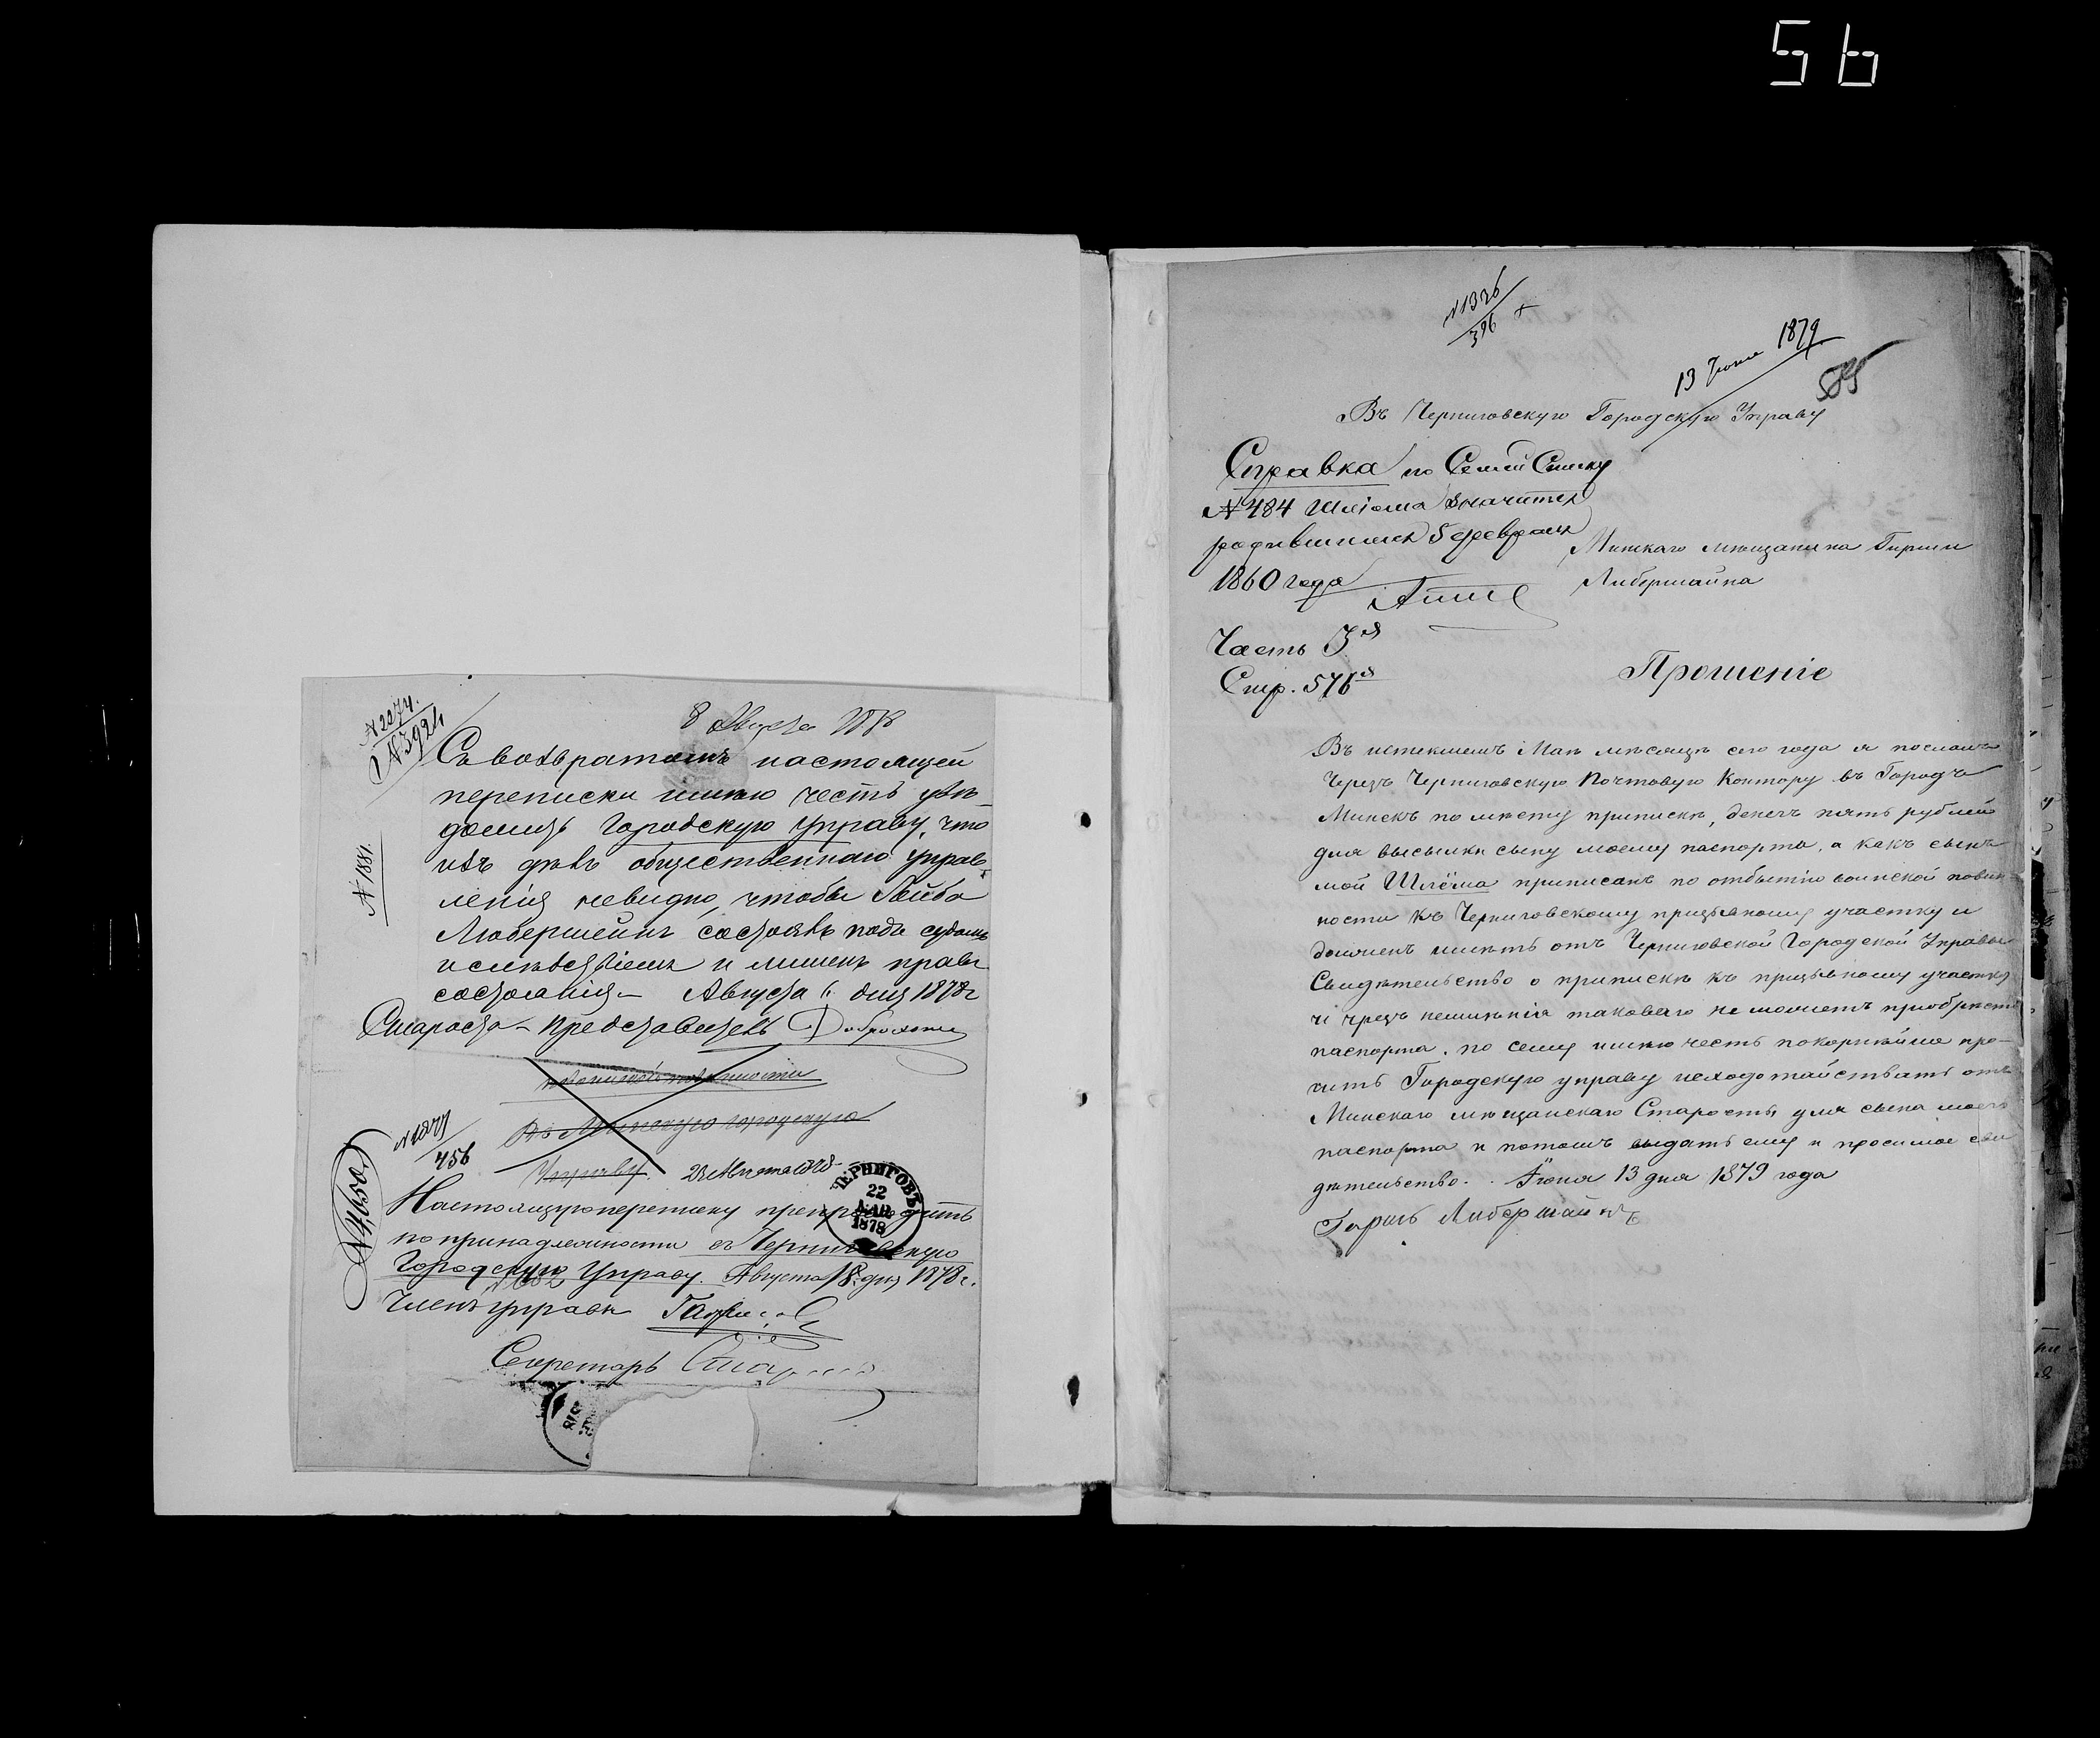 56
№ 2274.
№ 3924
8 Августа 1878
Съ возвратомъ настоящей
переписки имѣю честь увѣ-
домить Городскую Управу, что
изъ дѣлъ общественнаго управ-
ленія невидно, чтобы Лейба
Либершейнъ состоялъ подъ судомъ
и слѣдствіемъ и лишенъ правъ
состоянія – Августа 6 дня 1878 г
№ 1881.
Староста – Представитель
воинской повинности
Въ Минскую городскую
Управу.
456
№ 4650
ЧЕРНИГОВЪ
22
1878
Настоящую переписку препроводить
по принадлежности въ Черниговскую
Городскую Управу. Августа 18 дня 1878 г.
Членъ управы
Секретарь
№ 1326
396
13 Іюня 1879
Въ Черниговскую Городскую Управу
Справка по Семей Списку
№ 484 Шлiома значится
родившимся 5 февраля
1860 года
Минскаго мѣщанина Гирши
Либермайна
Часть 3я
Стр. 576я
Прошеніе
Въ истекшемъ Маѣ мѣсяцѣ сего года я послалъ
Черезъ Черниговскую Почтовую Контору въ Городъ
Минскъ по мѣсту приписки, денегъ пять рублей
для высылки сыну моему паспорта, а какъ сынъ
мой Шлёма приписанъ по отбытію воинской повин
ности къ Черниговскому призывному участку и
долженъ имѣть отъ Черниговской Городской Управы
Свидѣтельство о припискѣ къ призывному участку
и чрезъ неимѣнія таковаго не можетъ приобрѣсти
паспорта. по сему имѣю честь покорнѣйше про-
сить Городскую управу исходотайствать отъ
Минскаго мѣщанскаго Старосты для сына моего
паспорта и потомъ выдать ему и просимое сви
дѣтельство. Іюня 13 дня 1879 года
Гиршъ Либермайнъ